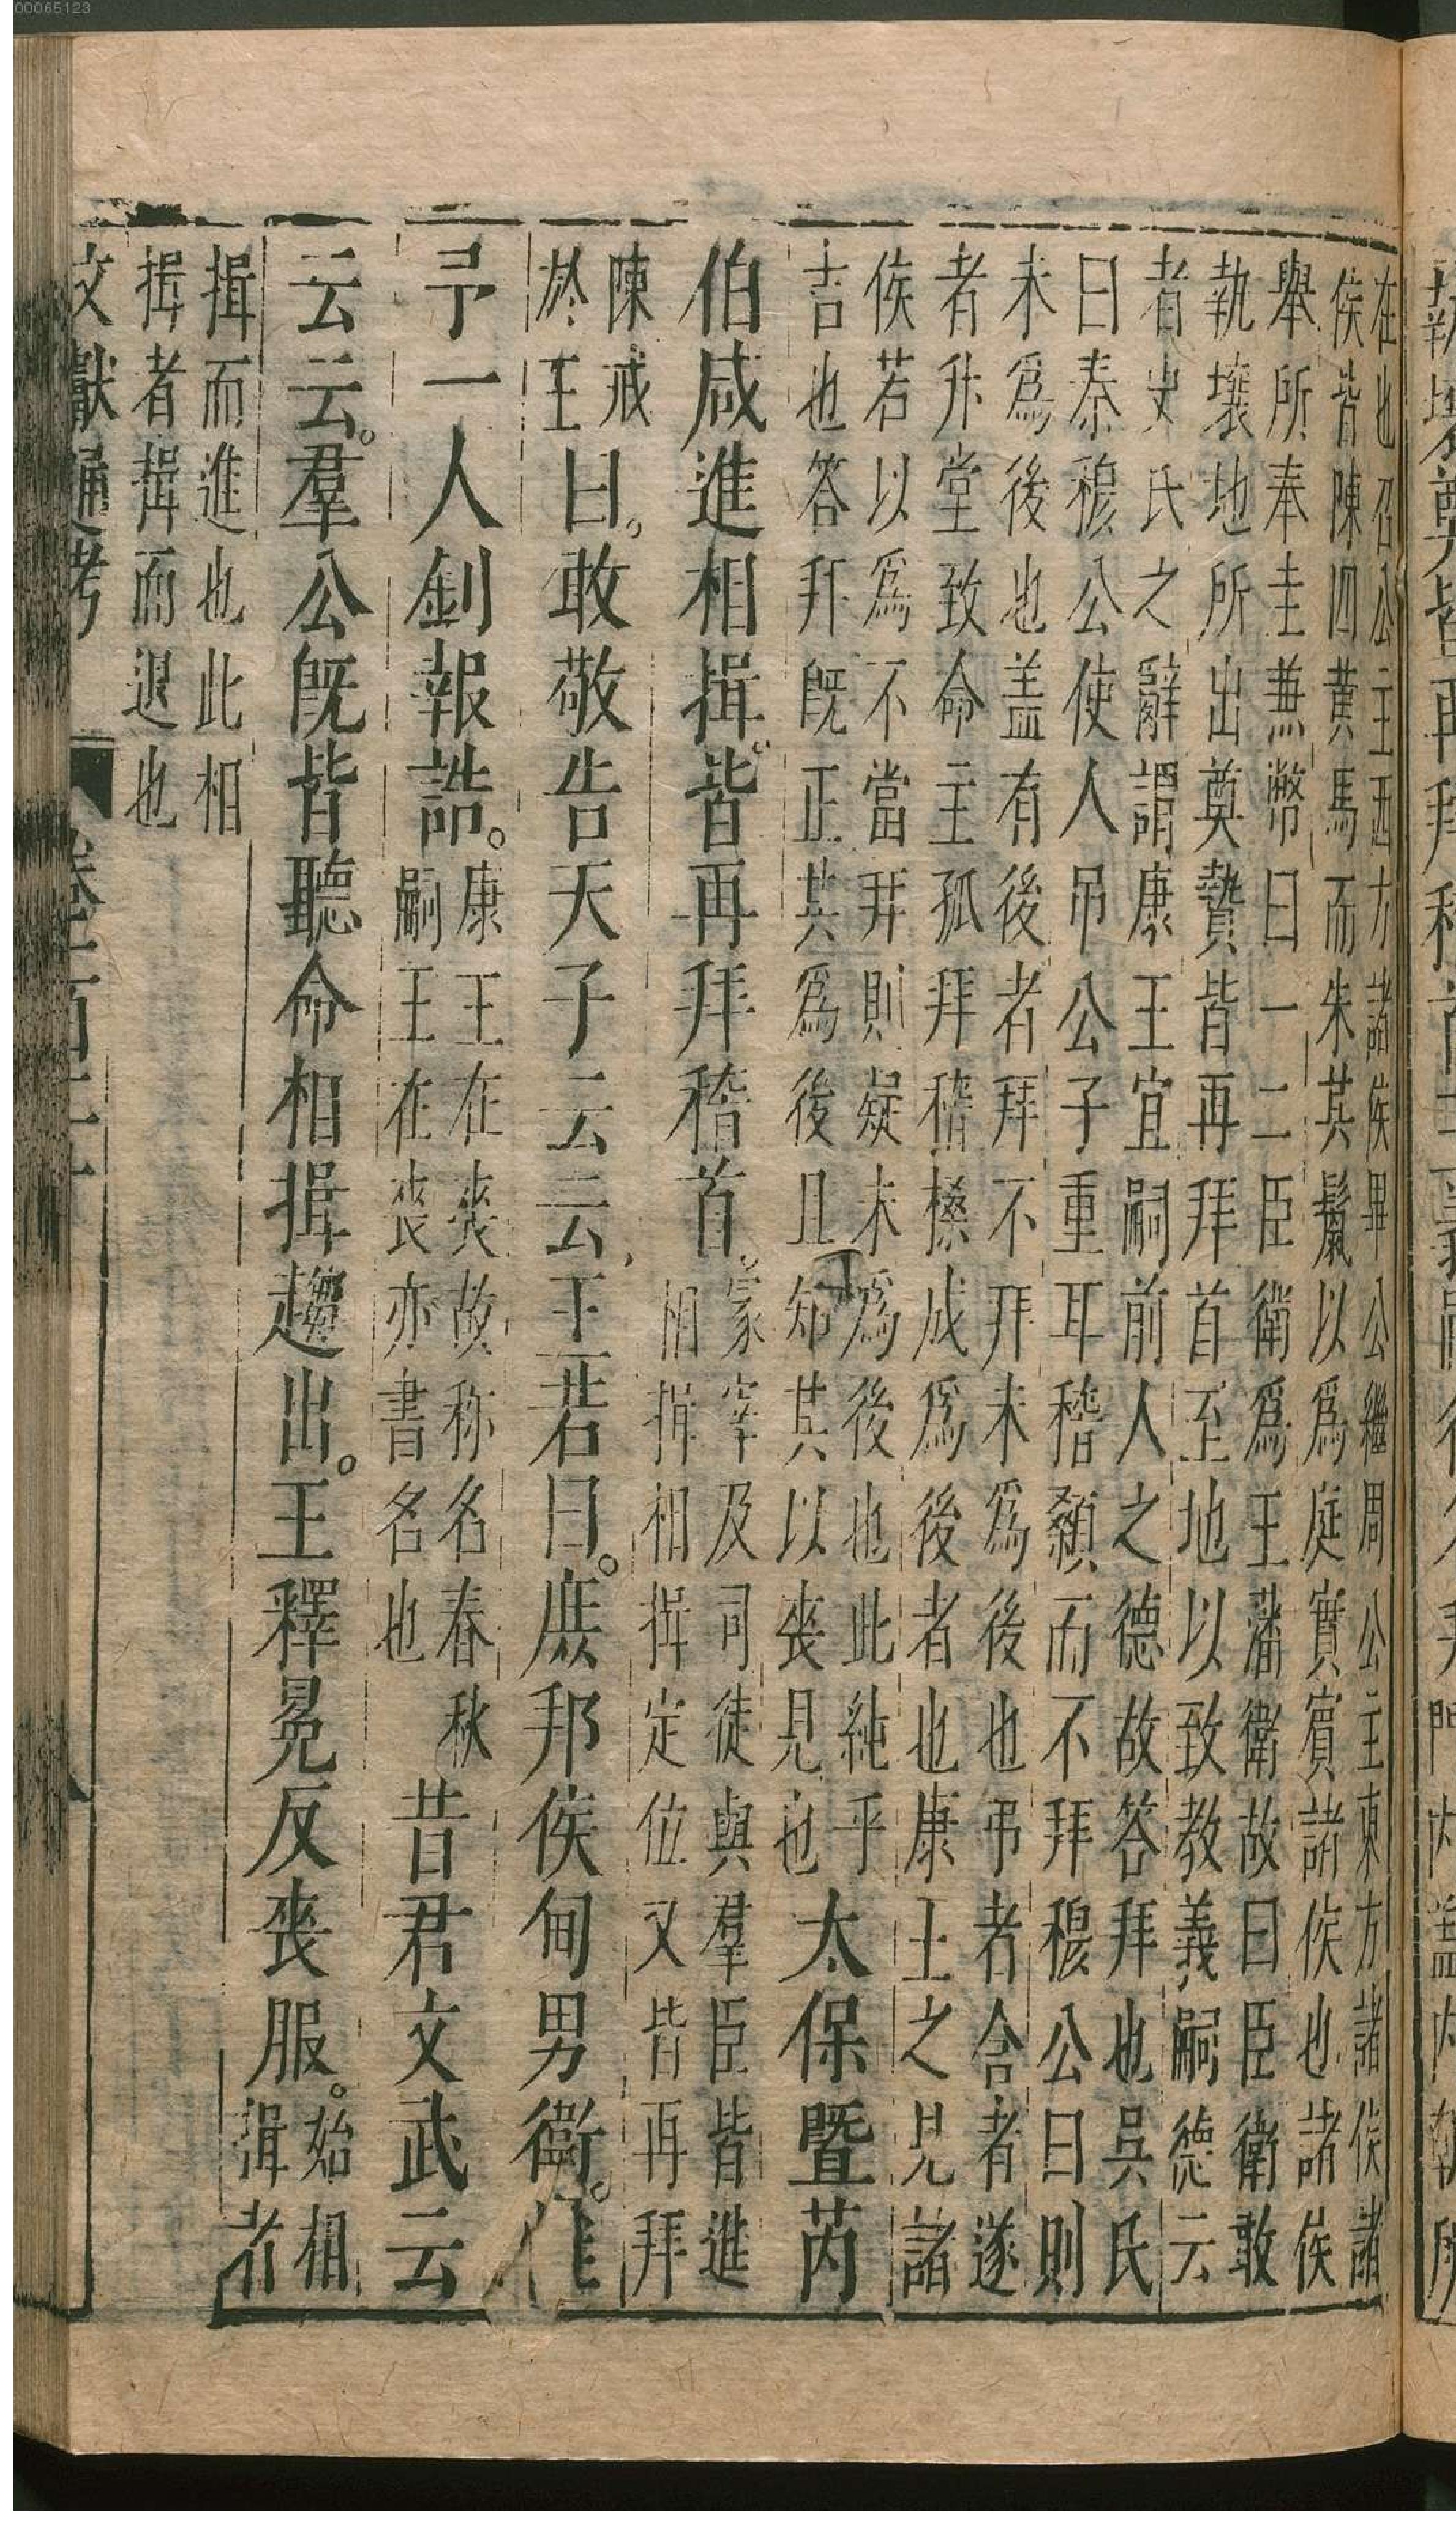 00065123
在也召公主西方諸侯畢公繼周公主東方諸侯諸
侯皆陳四黄馬而朱其鬣以爲庭實賓諸侯也諸侯
舉所奉圭兼幣曰一二臣衛爲王藩衛故曰臣衛敢
執壤地所出奠贄皆再拜首至地以致敎義嗣德云
者史氏之辭謂康王宜嗣前人之德故答拜也吳氏
曰秦穆公使人吊公子重耳稽顙而不拜穆公曰則
未爲後也盖有後者拜不拜未爲後也弔者含者遂
者升堂致命主孤拜稽顙成爲後者也康王之見諸
侯若以爲不當拜則疑未爲後也此純乎
吉也答拜既正其爲後且知其以喪見也
太保暨芮
伯咸進相揖皆再拜稽首
冢宰及司徒與羣臣皆進
相揖相揖定位又皆再拜
陳戒
於王
曰敢敬告天子云云王若曰庶邦侯甸男衛惟
予一人釗報誥
康王在喪故称名春秋
嗣王在喪亦書名也
昔君文武云
云云羣公既皆聽命相揖趨出王釋冕反喪服
始相
揖者
揖而進也此相
揖者揖而退也
文獻通考